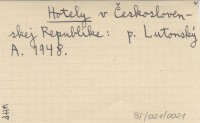 Hotely v Českosloven-
skej Republike: p. Lutonský
A. 1948.
BI/021/0021